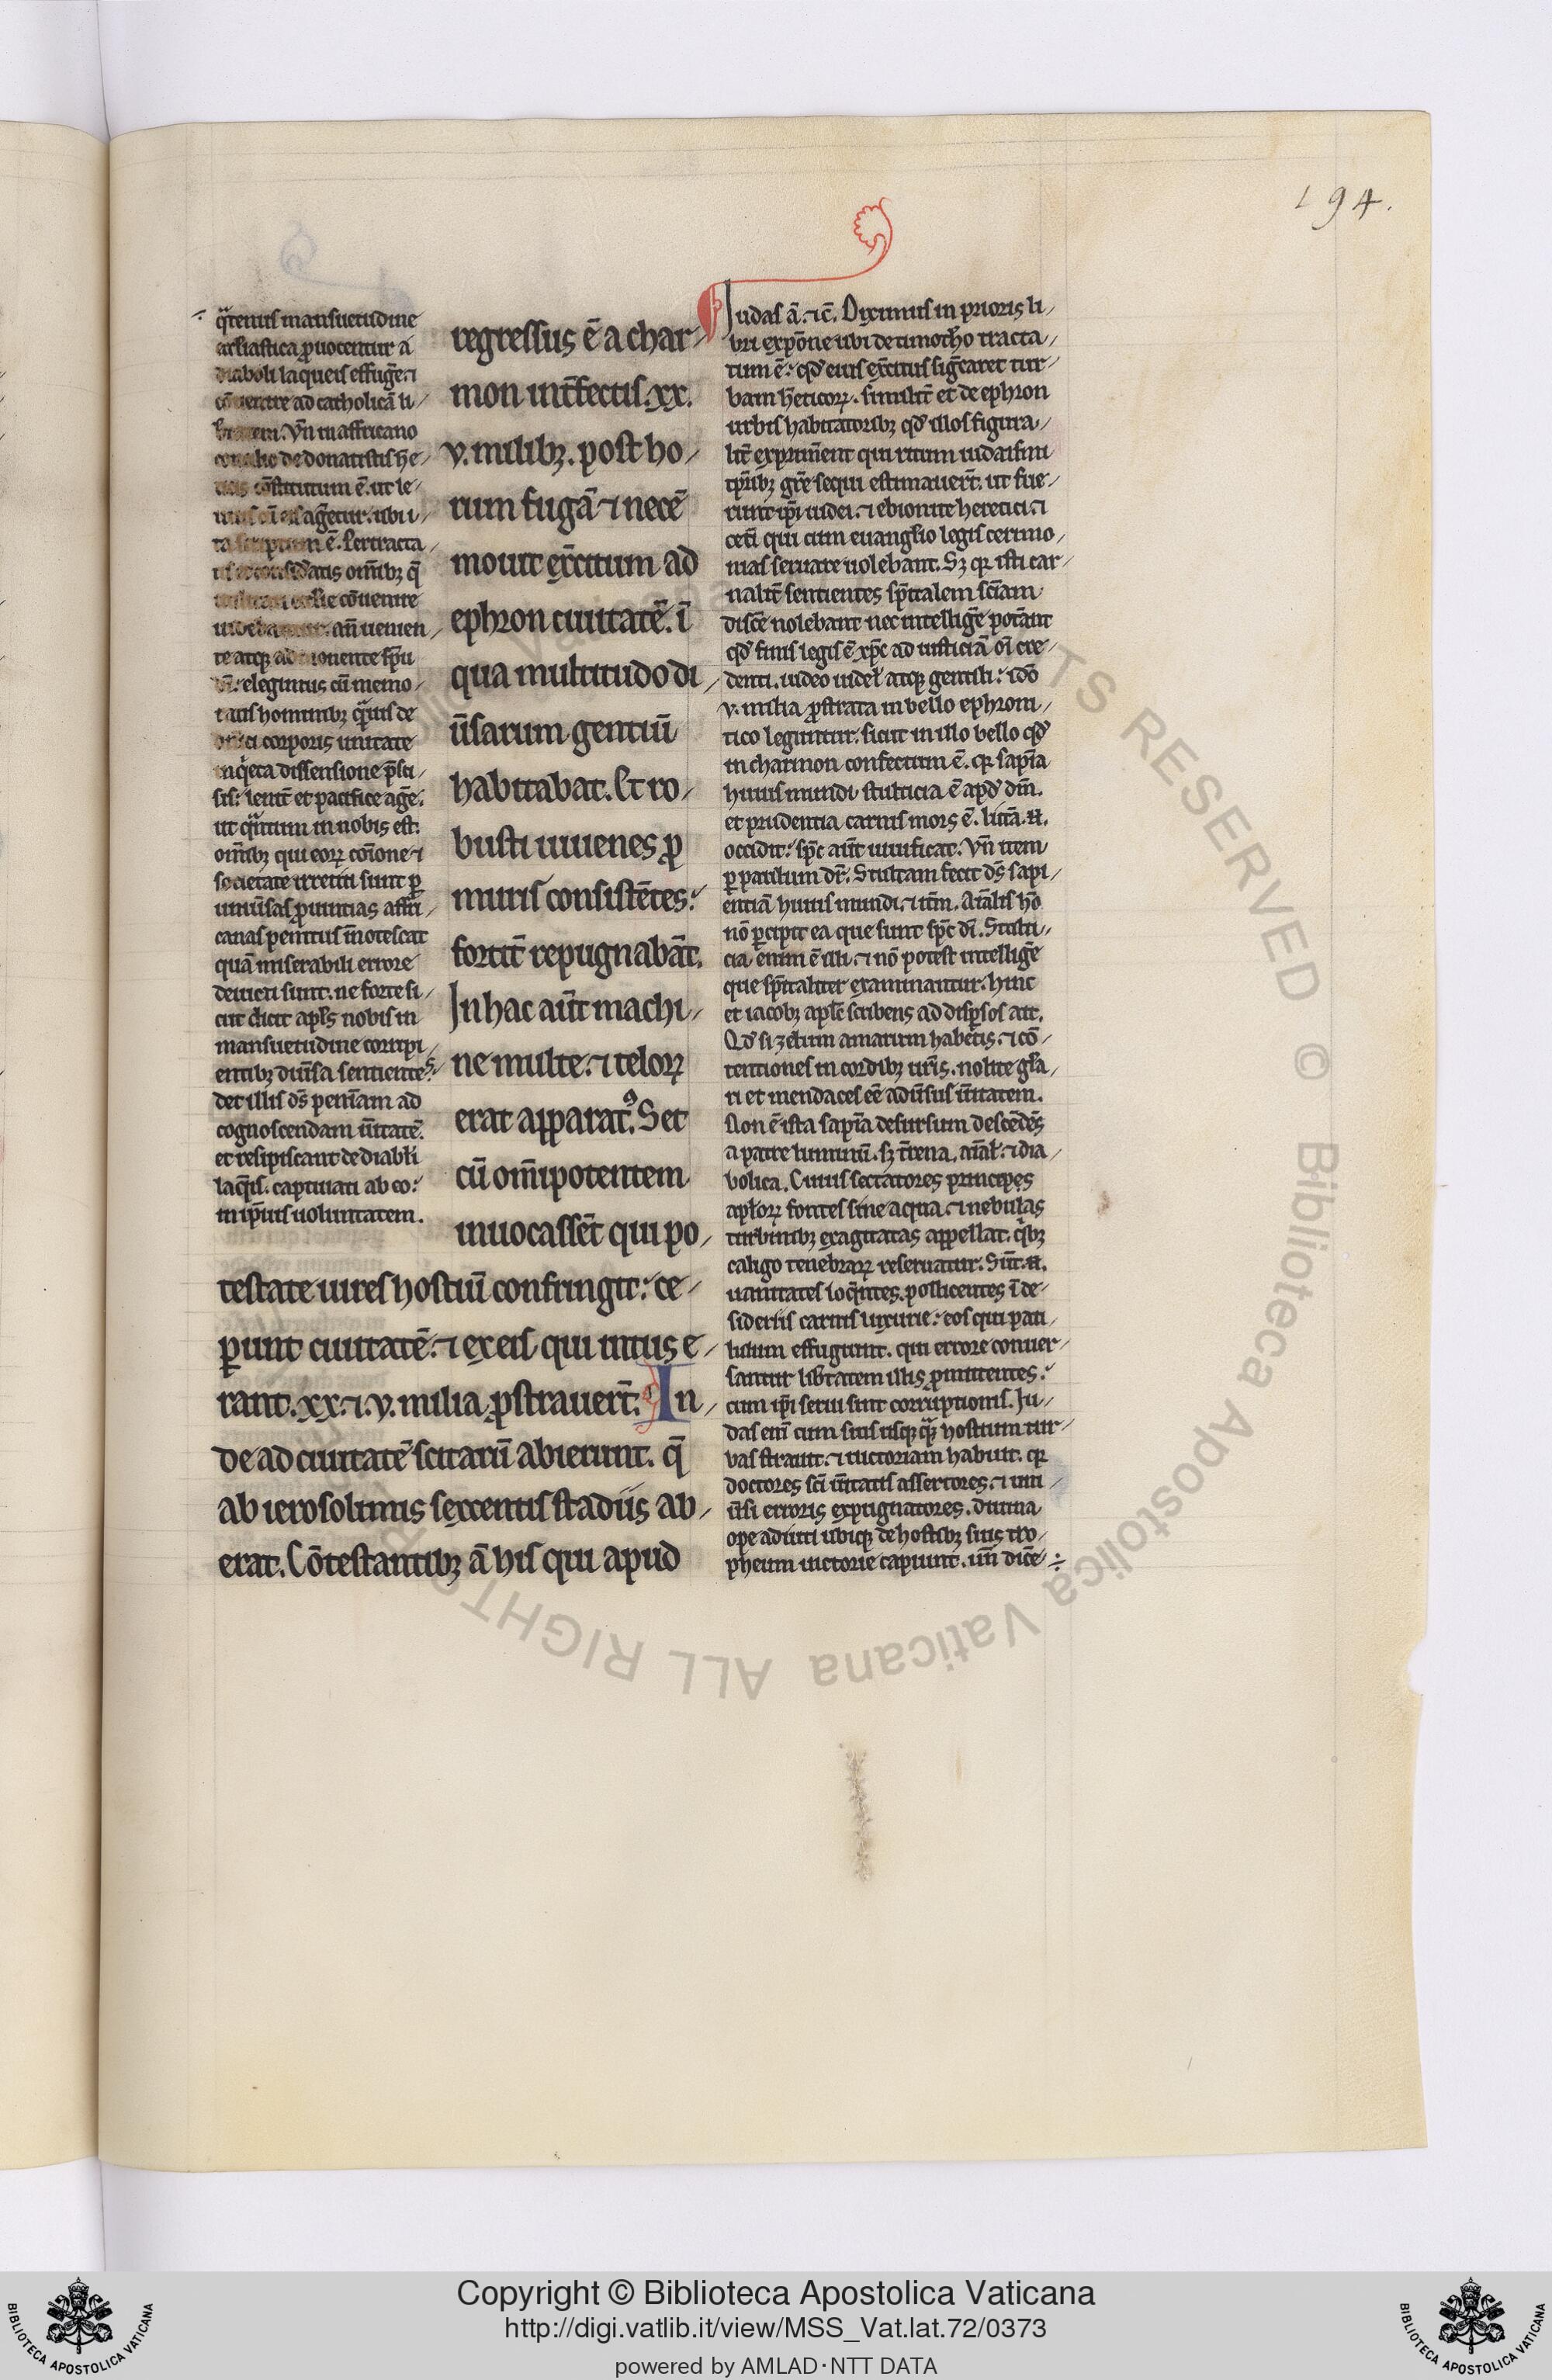 194.
q̃tenus mansuetudine
eccl̃iastica ꝓuocentur a
diaboli laqueis effug̃e ⁊
cõuertere ad catholicã li/
Vñ in affricano
concilio de donatistis he/
cõstitutum ẽ. ut le/
aget̃ur. ubi i/
ta scriptum ẽ. Pertracta/
tis omĩbꝫ q̃
cõuenire
an̄uuen/
te atqꝫ admonente sp̃u
elegimus cũ memo/
ratis hominibꝫ q̃uis de
corporis unitate
inq̃eta dissensione p̃sci/
sis: lenit̃ et pacifice ag̃e.
ut q̃ntum in nobis est.
omĩbꝫ qui eoꝝ cõione ⁊
societate irretiti sunt ꝑ
uniũsas ꝓuintias affri/
canas penitus ĩnotescat
quã miserabili errore
deuicti sunt. ne forte si/
cut dicit apl̃s nobis in
mansuetudine corripi/
entibꝫ diũsa sentientes:
det illis d̃s penit̃iam ad
cognoscendam ũitatẽ.
et resipiscant de diabl̃i
laq̃is. captiuati ab eo:
in ip̃ius uoluntatem.
regressus ẽ a char/
mon int̃fectis .xx.
v. milibꝫ. post ho/
rum fugã ⁊ necẽ
mouit ex̃citum ad
ephron ciuitatẽ. ĩ
qua multitudo di/
ũsarum gentiũ
habitabat. Et ro/
busti iuuenes ꝓ
muris consistẽtes:
fortit̃ repugnabãt.
In hac aũt machi/
ne multe: ⁊ teloꝝ
erat apparatꝰ. Set
cũ omĩpotentem
inuocassẽt qui po/
testate uires hostiũ confringit: ce/
ꝑunt ciuitatẽ: ⁊ ex eis qui intus e/
rant .xx. ⁊ .v. milia ꝓstrauer̃t. In/
de ad ciuitatẽ scitarũ abierunt. q̃
ab ierosolimis sexcentis stadiis ab/
erat. Cõtestantibꝫ ã his qui apud
Iudas ã. ⁊c̃. Diximus in prioris li/
bri expõne ubi de timotho tracta/
tum ẽ: qd̃ eius ex̃citus sig̃caret tur/
bam h̃eticoꝝ. similit̃ et de ephron
urbis habitatoribꝫ qd̃ illos figura/
lit̃ exprim̃ent qui ritum iudaismi
tp̃ribꝫ gr̃e sequi estimauer̃t. ut fue/
runt ip̃i iudei. ⁊ ebionite heretici. ⁊
cet̃i qui cum euanglio legis cerimo/
nias seruare uolebant. Sꝫ qꝛ isti car/
nalit̃ sentientes sp̃italem sc̃iam
disc̃e nolebant nec intellig̃e pot̃ant
qd̃ finis legis ẽ xp̃c ad iusticiã oĩ cre/
denti. iudeo uidel̃ atqꝫ gentili: idõ
v. milia ꝓstrata in bello ephroni/
tico leguntur. sicut in illo bello qd̃
in charmon confectum ẽ. qꝛ sapĩa
huius mundi stulticia ẽ apd̃ dm̃.
et prudentia carnis mors ẽ. litt̃a .n̄.
occidit: sp̃c aũt uiuificat. Vñ item
ꝑ paulum dr̃. Stultam fecit d̃s sapi/
entiã huius mundi. ⁊ itm̃. Aĩalis hõ
nõ ꝑcipit ea que sunt sp̃c dĩ. Stulti/
cia enim ẽ illi. ⁊ nõ potest intellig̃e
que sp̃italiter examinantur. hinc
et iacobꝫ apl̃c scribens ad disꝑsos ait.
Qd̃ si zelum amarum habetis. ⁊ cõ/
tentiones in cordibꝫ ur̃is. nolite gl̃a/
ri et mendaces eẽ aduñsus ũitatem.
Non ẽ ista sapĩa desursum descẽdẽs
a patre luminũ. sꝫ t̃rena. aĩal̃. ⁊ dia/
bolica. Cuius sectatores principes
apl̃oꝝ fontes sine aqua. ⁊ nebulas
turbinibꝫ exagitatas appellat. q̃bꝫ
caligo tenebraꝝ reseruatur. Sũt .n̄.
uanitates loq̃ntes. pollicentes ĩ de/
sideriis carnis luxurie: eos qui pau/
lulum effugiunt. qui errore conuer/
santur lib̃tatem illis ꝓmittentes:
cum ip̃i serui sint corruptionis. Iu/
das eni cum suis usqꝫq̃qꝫ hostium tur/
bas strauit. ⁊ uictoriam habuit. qꝛ
doctores sc̃i ũitatis assertores. ⁊ uni/
ũsi erroris expugnatores. diuina
ope adiuti ubiqꝫ de hostibꝫ suis tro/
pheum uictorie capiunt. uñ dic̃e
Copyright © Biblioteca Apostolica Vaticana
http://digi.vatlib.it/view/MSS_Vat.lat.72/0373
powered by AMLAD·NTT DATA
BIBLIOTECA APOSTOLICA VATICANA
BIBLIOTECA APOSTOLICA VATICANA
© Biblioteca Apostolica Vaticana ALL RIGHTS RESERVED